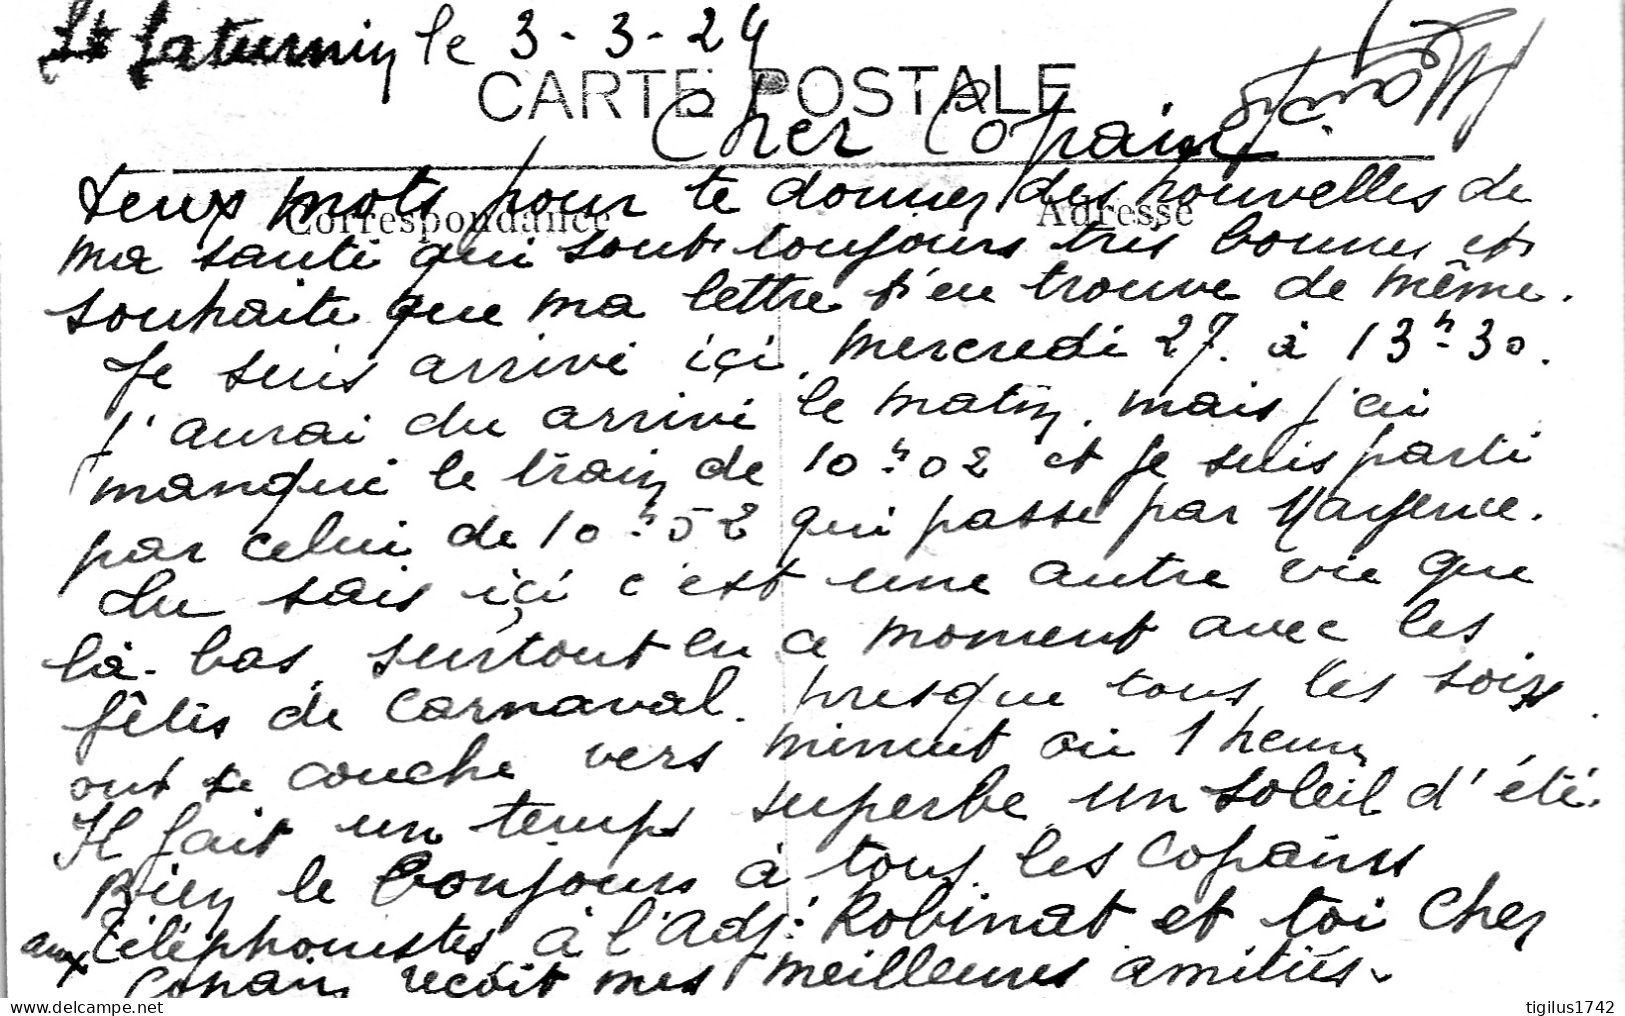 St Saturnin le 3-3-24
CARTE POSTALE
Cher Copain
Correspondance
Adresse
deux mots pour te donner des nouvelles de
ma santé qui sont toujours très bonnes et
souhaite que ma lettre t'en trouve de même.
Je suis arrivé içi mercredi 27. à 13h-30.
J'aurai du arrivé le matin, mais j'ai
manqué le train de 10h-02 et je suis parti
par celui de 10h-52 qui passe par Mayence.
Tu sais içi c'est une autre vie que
là-bas, surtout en ce moment avec les
fêtes de Carnaval. presque tous les soirs
ont se couche vers minuit ou 1 heure
Il fait un temps superbe un soleil d'été.
Bien le bonjours à tous les copains
aux téléphonistes à l'Adj: Robinat et toi Cher
Copain reçoit mes meilleures amitiés.
delcampe.net
tigilus1742